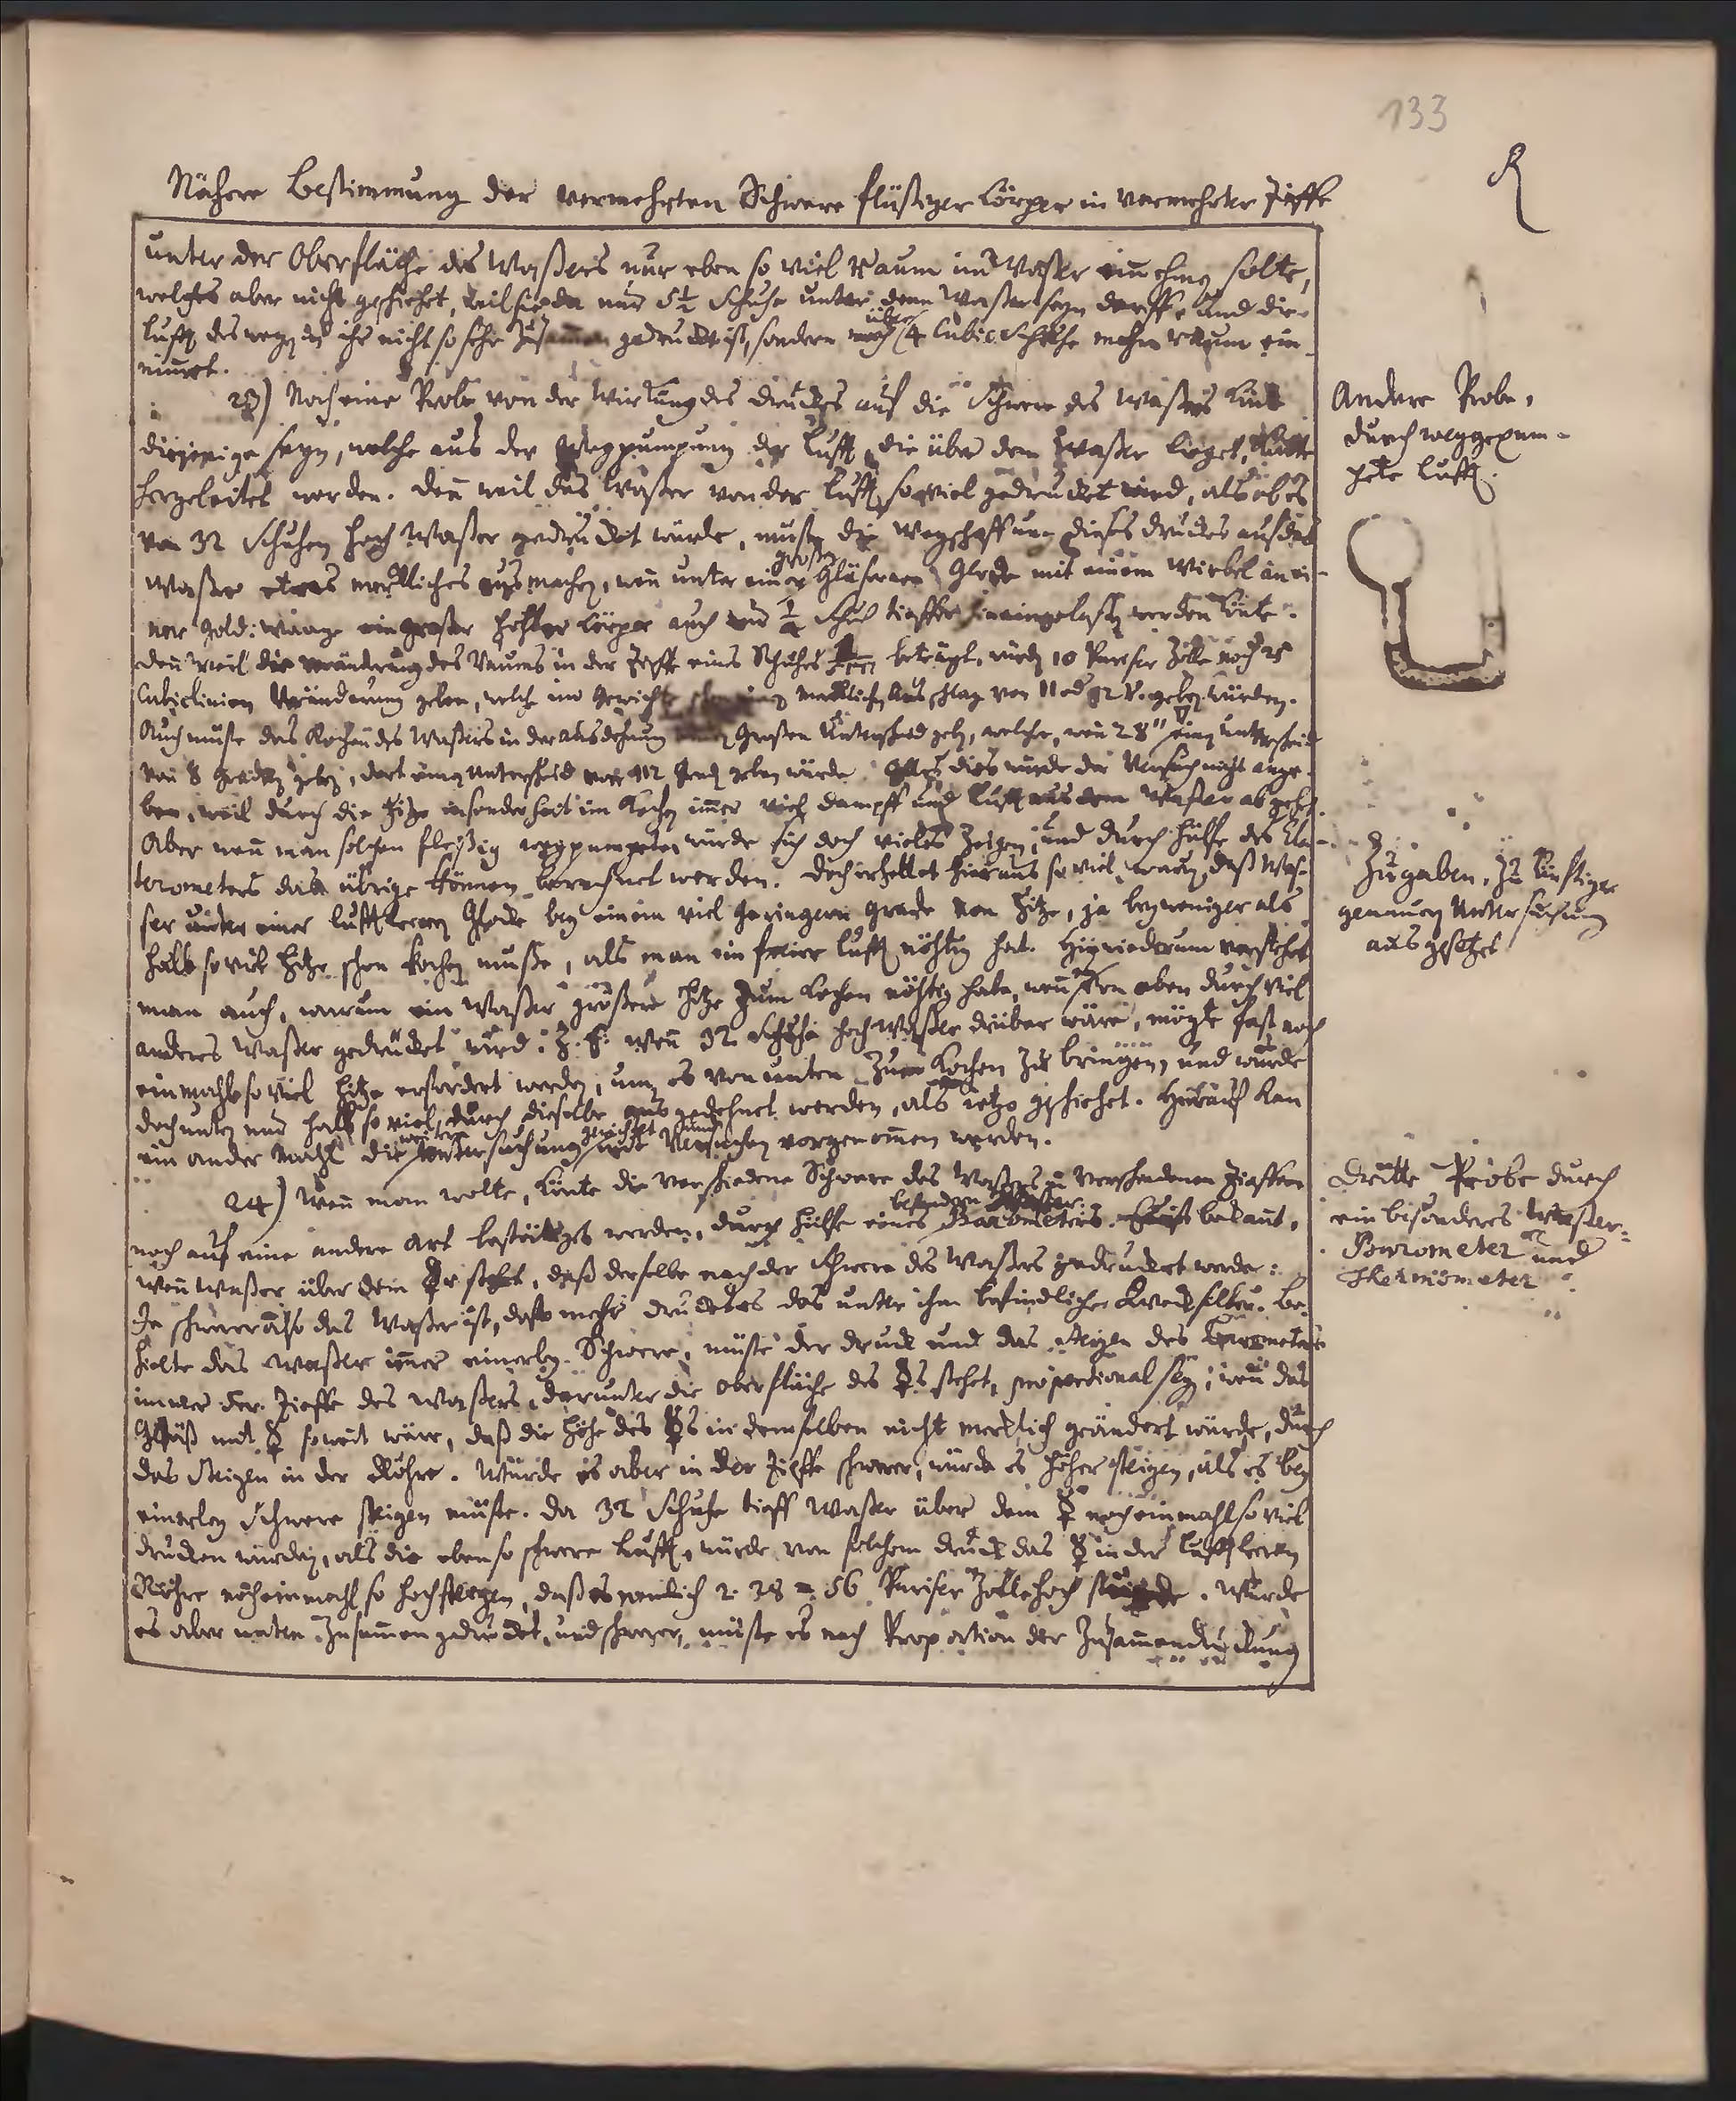 133
R
Nähere Bestimmung der vermehrten Schwere flüßiger Cörper in vermehrter Tieffe
unter der Oberfläche des Waßers nur eben so viel Raum im Waßer einnehmen solte,
welches aber nicht geschiehet, weil sie da nur 5½ Schuhe unter dem Waßer seyn darff, und die
Lufft deswegen in ihr nicht so sehr zusammen gedruckt ist, sondern über 4 Cubic Schuhe mehr Raum ein-
nimmt.
23) Noch eine Probe von der Wirkung des Druckes auf die Schwere des Waßers könte
diejenige seyn, welche aus der Wegpumpung der Lufft, die über dem Waßer lieget, könte
hergeleitet werden. Denn weil das Waßer von der Lufft so viel gedruckt wird, als ob es
von 32 Schuhen hoch Waßer gedruckt würde, müste die Wegschaffung dieses Druckes auf das
Waßer etwas merckliches ausmachen, wenn unter einer großen Gläsernen Glocke mit einem Wirbel an ei-
ner Gold-Waage ein großer hohler Cörper auch nur ¼ Schuh tieffer hineingelaßen werden könte.
Denn weil die Veränderung des Raums in der Tieffe eines Schuhes beträgt, würden 10 Pariser Zolle noch 25
Cubiclinien Veränderung geben, welche im Gewichte mercklichen Ausschlag von 11 od 12 geben würden.
Auch müste das Kochen des Waßers in der Ausdehnung großen Unterscheid geben, welcher, wenn 28" einen Unterscheid
von 8 Graden geben, dort einen Unterscheid von 912 Grad geben würde. Allein dies würde der Versuch nicht ange-
ben, weil durch die Hitze insonderheit im Kochen immer viel Dampff und Lufft aus dem Waßer abgehet.
Aber wenn man solchen fleißig wegpumpete, würde sich doch vieles zeigen, und durch Hülffe des Ela-
terometers das übrige können berechnet werden. Doch erhellet hieraus so viel, warum daß Waß-
ser unter einer lufftleeren Glocke bey einem viel geringern Grade von Hitze, ja bey weniger als
halb so viel Hitze schon kochen müße, als man in freier Lufft nöhtig hat. Hinwiederum verstehet
man auch, warum ein Waßer größere Hitze zum Kochen nöhtig habe, wenn oben durch viel
anderes Waßer gedruckt wird: Z. E. wenn 32 Schuhe hoch Waßer drüber wäre, mögte fast noch
einmahl so viel Hitze erfordert werden, um es von unten zum Kochen zu bringen, und würde
doch unten nur halb so viel durch dieselbe ausgedehnet werden, als ietzo geschiehet. Hierauf kan
ein ander Mahl die weitere Untersuchung gerichtet und mit Versuchen vorgenommen werden.
24) Wenn man wolte, könte die verschiedene Schwere des Waßers in verschiedenen Tieffen
noch auf eine andere Art bestätiget werden, durch Hülffe eines besondern Barometers. Es ist bekannt,
wenn Waßer über dem ☿r stehet, daß derselbe nach der Schwere des Waßers gedruckt werde:
Je schwerer also das Waßer ist, desto mehr druckt es das unter ihm befindliche Quecksilber. Be-
hielte das Waßer immer einerley Schwere, müste der Druck und das Steigen des Barometers
immer der Tieffe des Waßers, darunter die Oberfläche des ☿s stehet, proportional seyn; wenn das
Gefäß mit ☿ so weit wäre, daß die Höhe des ☿s in demselben nicht mercklich geändert würde, durch
das Steigen in der Röhre. Würde es aber in der Tieffe schwerer, würde es höher steigen, als es bey
einerley Schwere steigen müste. Da 32 Schuhe tieff Waßer über dem ☿ noch einmahl so viel
drucken würden, als die eben so schwere Lufft, würde von solchem Druck das ☿ in der lufftleeren
Röhre noch einmahl so hoch steigen, daß es nemlich 2. 28 = 56 Pariser Zolle hoch stünde. Würde
es aber unten zusammen gedruckt, und schwerer, müste es nach Proportion der Zusammendruckung
Andere Probe,
durch weggepum-
pete Lufft.
Zugaben, zu künftiger
genauen Untersuchung
ausgesetzet
Dritte Probe durch
ein besonderes Waßer-
Barometer und
Thermometer